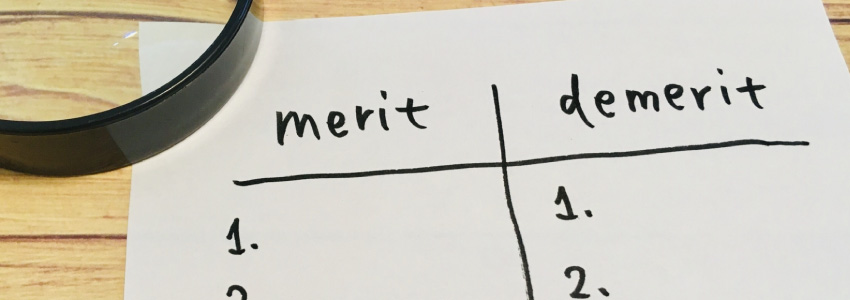 merit demerit
1. 1.
2. 2.